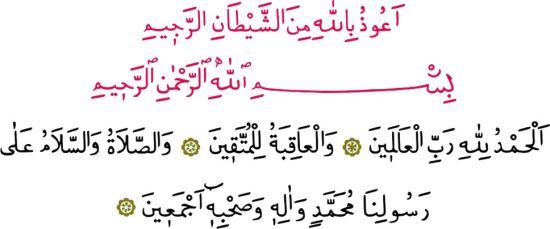 اَعُوذُ بِاللهِ مِنَ الشَّيْطَانِ الرَّجِيمِ
بِسْمِ اللهِ الرَّحْمٰنِ الرَّحِيمِ
اَلْحَمْدُ لِلهِ رَبِّ الْعَالَمِينَ ۞ وَالْعَاقِبَةُ لِلْمُتَّقِينَ ۞ وَالصَّلَاةُ وَالسَّلَامُ عَلٰى
رَسُولِنَا مُحَمَّدٍ وَاٰلِهِ وَصَحْبِهِٓ اَجْمَعِينَ ۞